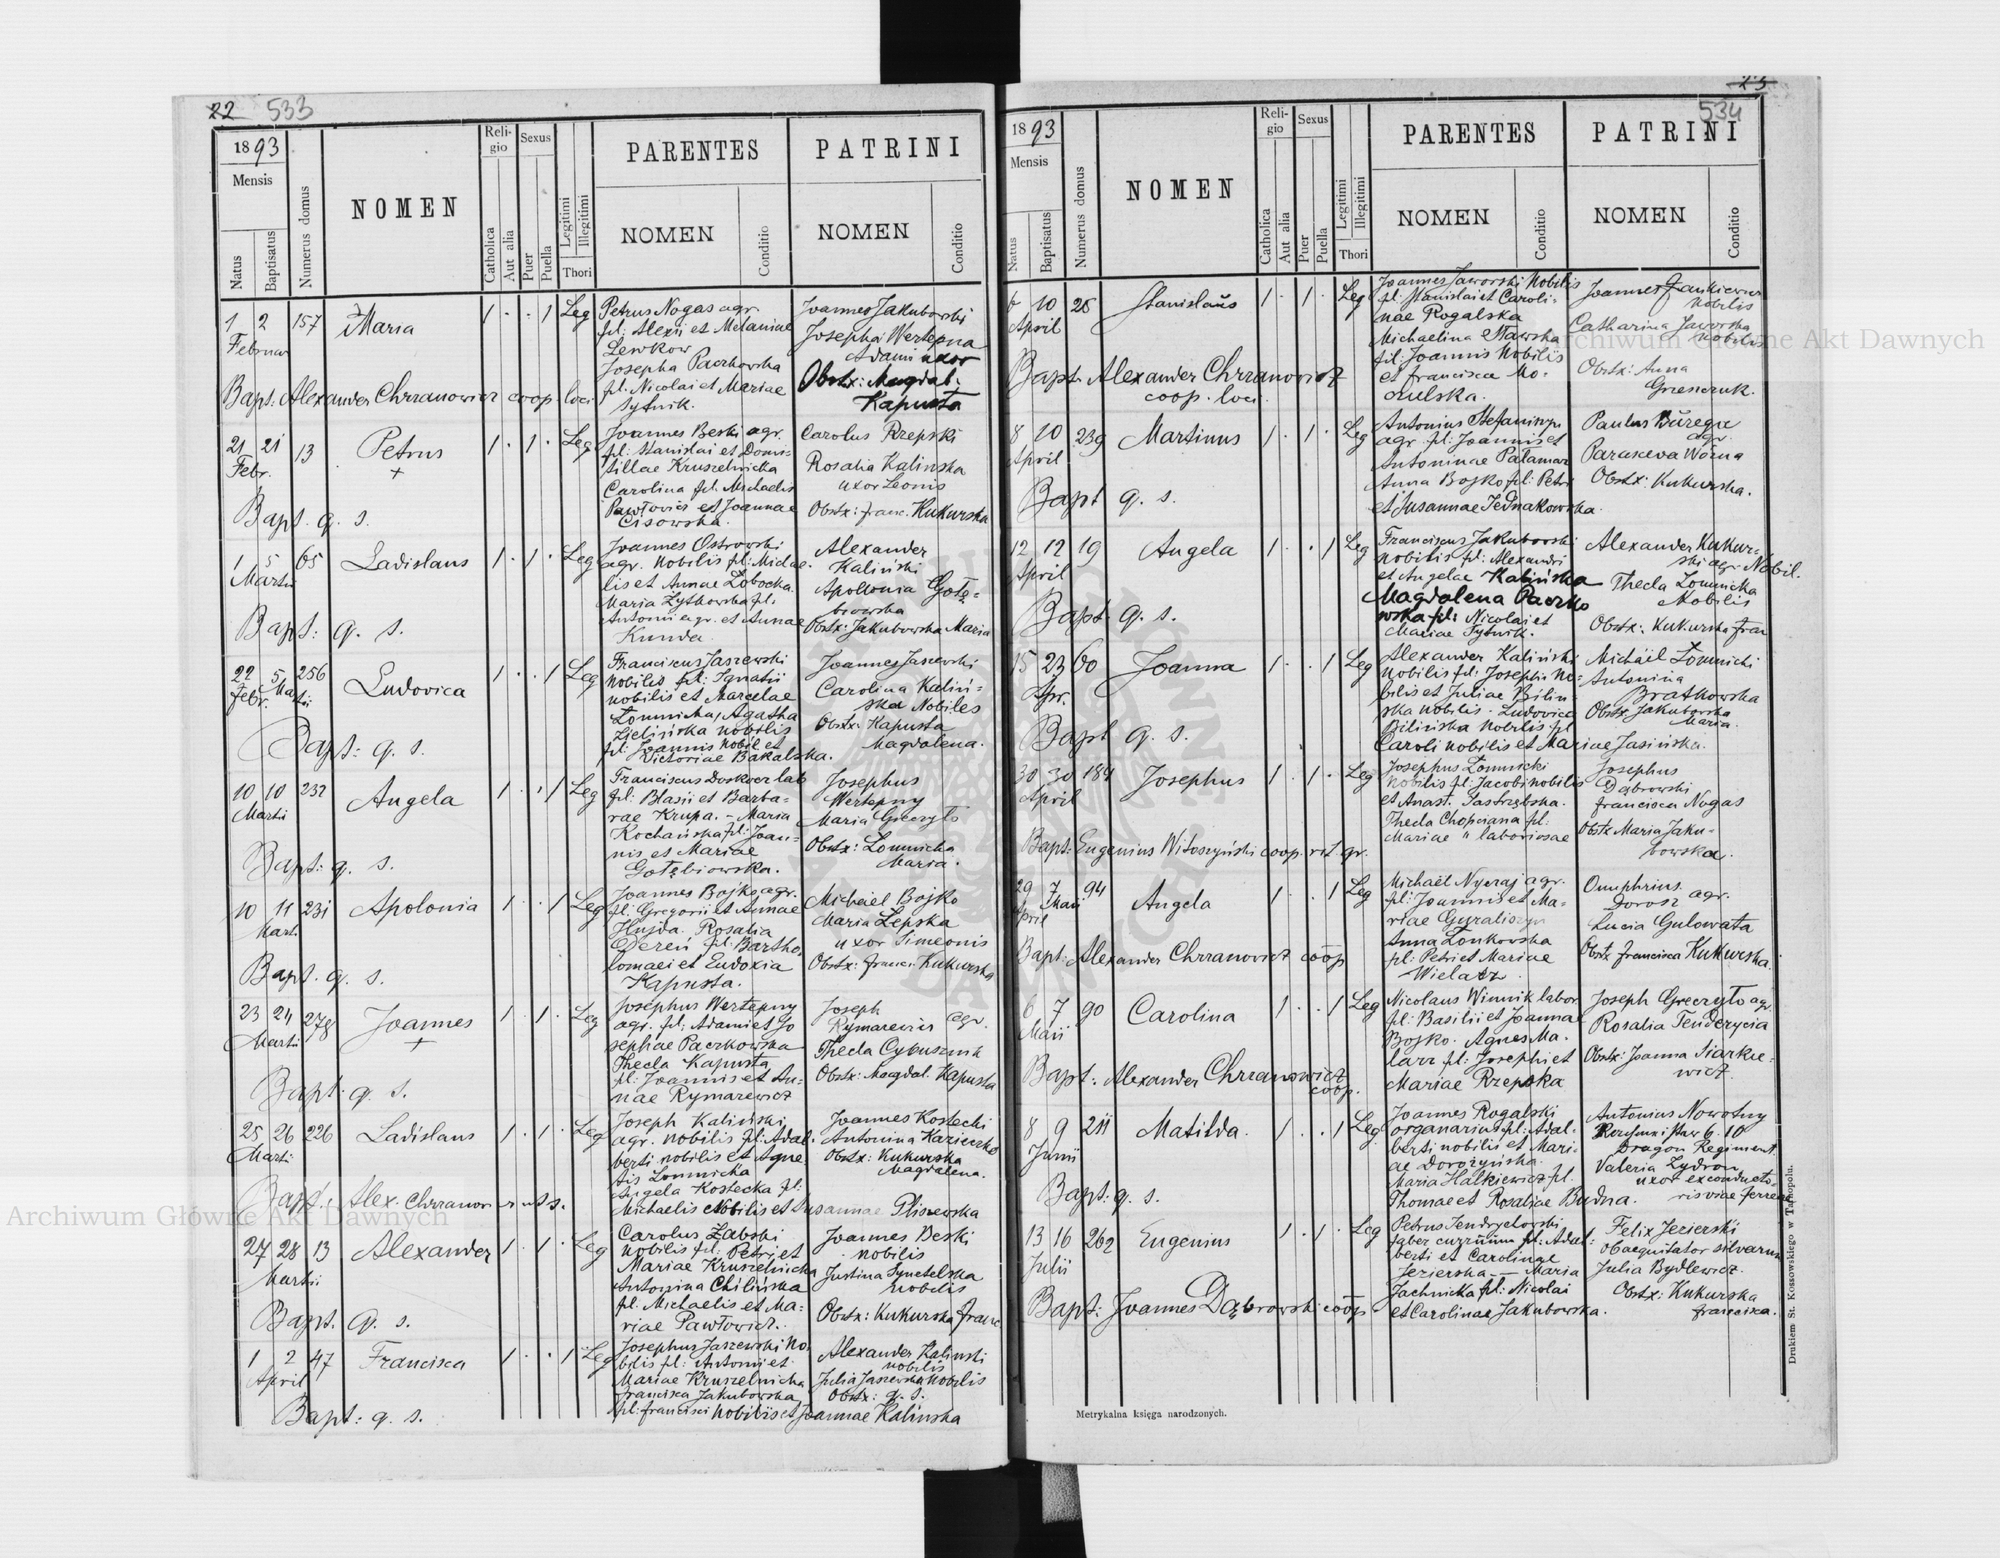 22 533
1893
Mensis
Natus
Baptisatus
Numerus domus
NOMEN
Religio
Catholica
Aut alia
Sexus
Puer
Puella
Legitimi
Illegitimi
Thori
PARENTES
NOMEN
Conditio
PATRINI
NOMEN
Conditio
1 2 157 Maria 1 . . 1 Leg
Februar
Petrus Nogas agr.
fil: Alexii et Melaniae
Lewkow
Josepha Paczkowska
fil: Nicolai et Mariae
Sytnik.
Joannes Jakubowski
Josepha Wertepna
Adami uxor
Obstx: Magdal.
Kapusta
Bapt: Alexander Chrzanowicz coop. loci
21 21 13 Petrus 1 . 1 . Leg
Febr. +
Joannes Beski agr.
fil: Stanislai et Domi-
tillae Kruszelnicka
Carolina fil: Michaelis
Pawłowicz et Joannae
Cisowska.
Carolus Rzepski
Rosalia Kalinska
uxor Leonis
Obstx: franc. Kukurska
Bapt. q. s.
1 5 65 Ladislaus 1 . 1 . Leg
Martii
Joannes Ostrowski
agr. Nobilis fil: Michae-
lis et Annae Łobocka.
Maria Zytkowska fil:
Antonii agr. et Annae
Kunda
Alexander
Kaliński
Apollonia Gołę-
biowska
Obstx: Jakubowska Maria
Bapt: q. s.
22 5 256 Ludovica 1 . . 1 Leg
Febr. Martii
Franciscus Jaszewski
nobilis fil: Ignatii
nobilis et Marcelae
Łomnicka, Agatha
Zielińska nobilis
fil: Joannis nobil et
Victoriae Bakalska.
Joannes Jaszewski
Carolina Kaliń-
ska Nobiles
Obstx: Kapusta
Magdalena.
Bapt: q. s.
10 10 232 Angela 1 . . 1 Leg
Martii
Franciscus Doskocz lab
fil: Blasii et Barba-
rae Krupa. - Maria
Kochańska fil: Joan-
nis et Mariae
Gołębiowska.
Josephus
Wertepny
Maria Greczyło
Obstx: Łomnicka
Maria.
Bapt: q. s.
10 11 231 Apolonia 1 . . 1 Leg
Mart.
Joannes Bojko agr.
fil: Gregorii et Annae
Hujda. Rosalia
Dereń fil: Bartho-
lomaei et Eudoxia
Kapusta.
Michael Bojko
Maria Lepska
uxor Simeonis
Obstx: franc. Kukurska
Bapt. q. s.
23 24 278 Joannes 1 . 1 . Leg
Martii +
Josephus Wertepny
agr. fil: Adami et Jo
sephae Paczkowska
Thecla Kapusta
fil: Joannis et An-
nae Rymarewicz
Joseph
Rymarewicz agr.
Thecla Cybusznik
Obstx: Magdal. Kapusta
Bapt: q. s.
25 26 226 Ladislaus 1 . 1 . Leg
Marti
Joseph Kaliński
agr. nobilis fil: Adal-
berti nobilis et Agne-
tis Łomnicka
Angela Kostecka fil:
Michaelis Nobilis et Susannae Pliszewska
Joannes Kostecki
Antonina
Obstx: Kukurska
Magdalena.
Bapt: Alex. Chrzanowicz ut s.
27 28 13 Alexander 1 . 1 . Leg
Martii
Carolus Zabski
nobilis fil: Petri et
Mariae Kruszelnicka
Antonina Chilińska
fil: Michaelis et Ma-
riae Pawłowicz.
Joannes Beski
nobilis
Justina Synetelska
nobilis
Obstx: Kukurska franc
Bapt. q. s.
1 2 47 Francisca 1 . . 1 Leg
April
Josephus Jaszewski No-
bilis fil: Antonii et
Mariae Kruszelnicka
Francisca Jakubowska
fil: francisci nobilis et Joannae Kalinska
Alexander Kalinski
nobilis
Julia Jaszewska nobilis
Obstx: q. s.
Bapt: q. s.
534
1893
Mensis
Natus
Baptisatus
Numerus domus
NOMEN
Religio
Catholica
Aut alia
Sexus
Puer
Puella
Legitimi
Illegitimi
Thori
PARENTES
NOMEN
Conditio
PATRINI
NOMEN
Conditio
6 10 25 Stanislaus 1 . 1 . Leg
April
Joannes Jaworski Nobilis
fil: Stanislai et Caroli-
nae Rogalska
Michaelina Stawska
fil: Joannis Nobilis
et francisca Mo-
Joannes Jankiewicz
nobilis
Catharina Jaworska
nobilis
Obstx: Anna
Bapt: Alexander Chrzanowicz
coop. loci
8 10 239 Martinus 1 . 1 . Leg
April
Antonius Stefaniszyn
agr. fil: Joannis et
Antoninae Pałamar
Anna Bojko fil: Petri
et Susannae Jednakowska.
Paulus
agr.
Parasceva Wozna
Obstx: Kukurska.
Bapt q. s.
12 12 19 Angela 1 . . 1 Leg
April
Franciscus Jakubowski
nobilis fil: Alexandri
et Angelae Kalińska
Magdalena Paczko
wska fil: Nicolai et
Mariae Sytnik.
Alexander Kukur-
ski agr Nobil.
Thecla Łomnicka
Nobilis
Obstx: Kukurska fran
Bapt. q. s.
15 23 60 Joanna 1 . . 1 Leg
Apr.
Alexander Kaliński
Nobilis fil: Josephi No-
bilis et Juliae Bilin-
ska nobilis. Ludovica
Bilińska nobilis fil
Caroli nobilis et Mariae Jasińska.
Michaël Łomnicki
Antonina
Bratkowska
Obstx: Jakubowska
Maria.
Bapt q. s.
30 30 184 Josephus 1 . 1 . Leg
April
Josephus Łomnicki
nobilis fil: Jacobi nobilis
et Anast. Jastrzębska.
Thecla Chopciana fil:
Mariae " laboriosae
Josephus
Dąbrowski
francisca Nogas
Obstx Maria Jaku-
bowska.
Bapt: Eugenius Witoszyński coop. rit. gr.
29 7 94 Angela 1 . . 1 Leg
April Maii
Michaël Nyczaj agr.
fil: Joannis et Ma-
riae Guraliszyn
Anna Łonkowska
fil: Petri et Mariae
Wielacz.
Onuphrius
Dorosz agr.
Lucia Gulowata
Obstx francisca Kukurska.
Bapt: Alexander Chrzanowicz coop
6 7 90 Carolina 1 . . 1 Leg
Maii
Nicolaus Winnik labor
fil: Basilii et Joannae
Bojko. Agnes Ma-
larz fil: Josephi et
Mariae Rzepska
Joseph Greczyło agr.
Rosalia Tenderycia
Obstx: Joanna Siarkie-
wicz.
Bapt: Alexander Chrzanowicz
coop.
8 9 211 Matilda. 1 . . 1 Leg
Junii
Joannes Rogalski
organarius fil: Adal-
berti nobilis et Mari-
ae Dorożyńska.
Maria Halkiewicz fil.
Thomae et Rosaliae Budna.
Antonius Nowotny
6. 10
Dragon Regiment
Valeria Zydron
uxor exconducto-
ris viae ferreae
Bapt: q. s.
13 16 262 Eugenius 1 . 1 . Leg
Julii
Petrus Jendrychowski
faber curruum fil: Adal-
berti et Carolinae
Jezierska — Maria
Jachnicka fil: Nicolai
et Carolinae Jakubowska.
Felix Jezierski
Obaequitator silvarum
Julia Bydlewicz.
Obstx: Kukurska
francisca.
Bapt: Joannes Dąbrowski coop.
Metrykalna księga narodzonych.
Drukiem St. Kossowskiego w Tarnopolu.
Archiwum Główne Akt Dawnych
Archiwum Główne Akt Dawnych